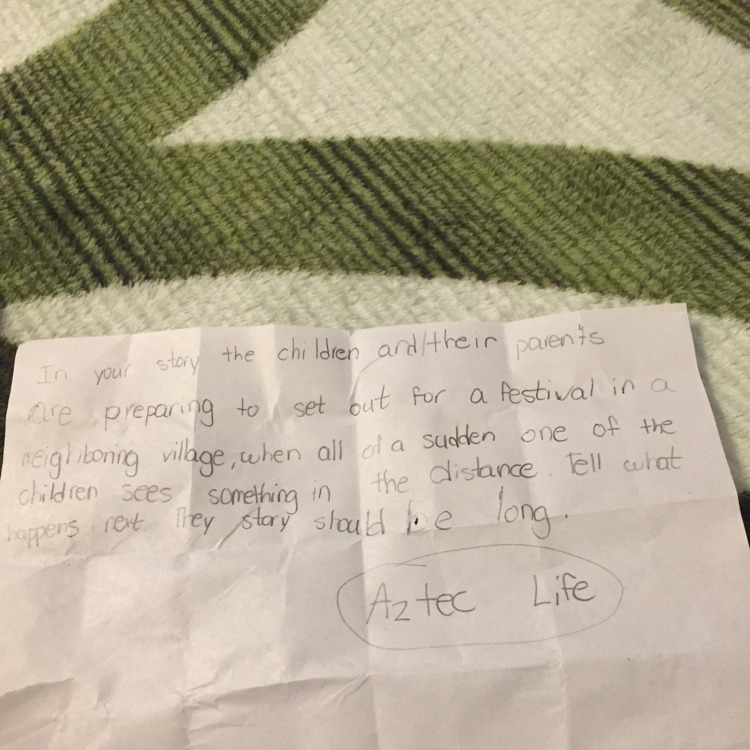 In your story the children and/their parents
are preparing to set out for a festival in a
neighboring village, when all of a sudden one of the
children sees something in the distance. Tell what
happens next. They story should be long.
Aztec Life